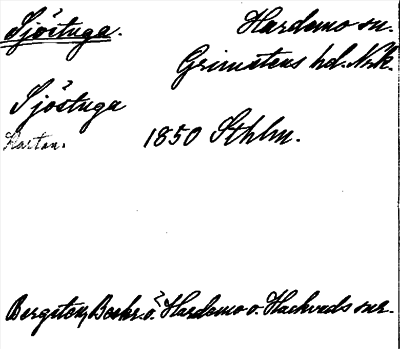 Sjöstuga.
Hardemo sn.
Grimstens hd. Nrk.
Sjöstuga
Kartan. 1850 Sthlm.
Bergsten, Beskr. ö. Hardemo o. Hackvads snr.